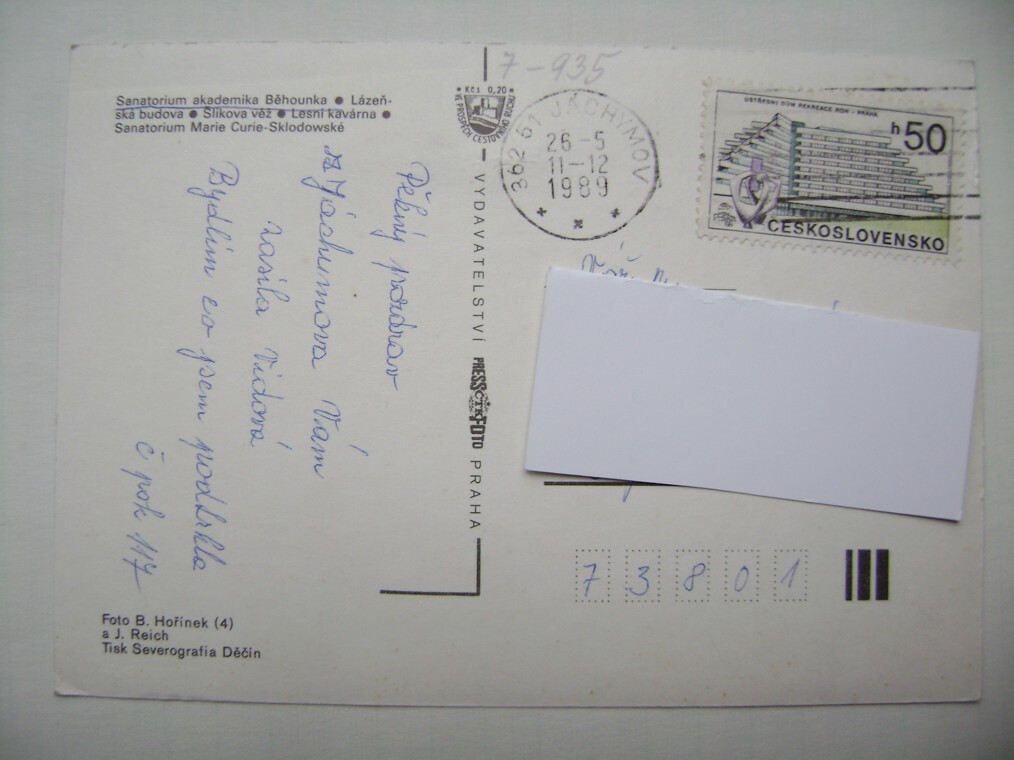 Sanatorium akademika Běhounka ● Lázeň-
ská budova ● Šlikova věž ● Lesní kavárna ●
Sanatorium Marie Curie-Sklodowské
Pěkný pozdrav
z Jáchymova Vám
zasílá Vidová
Bydlím co jsem podtrhla
č pok 117
Foto B. Hořínek (4)
a J. Reich
Tisk Severografia Děčín
Kčs 0,20
VE PROSPĚCH CESTOVNÍHO RUCHU
VYDAVATELSTVÍ PRESSFOTO PRAHA
ČTK
7-935
362 51 JÁCHYMOV
26-5
11-12
1989
ÚSTŘEDNÍ DŮM REKREACE ROH - PRAHA
h50
ČESKOSLOVENSKO
7 3 8 0 1